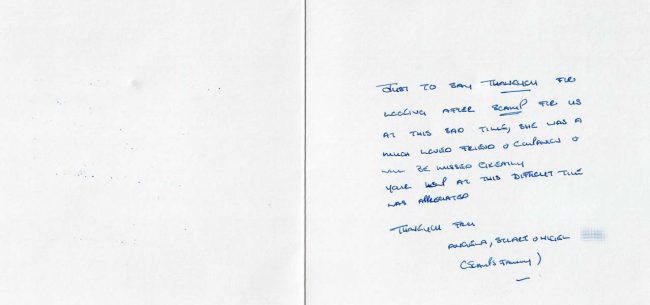 JUST TO SAY THANKYOU FOR
LOOKING AFTER SCAMP FOR US
AT THIS SAD TIME, SHE WAS A
MUCH LOVED FRIEND & COMPANION &
WILL BE MISSED GREATLY
YOUR HELP AT THIS DIFFICULT TIME
WAS APPRECIATED
THANKYOU FROM
ANGELA, STUART & NIGEL
(SCAMPS FAMILY)